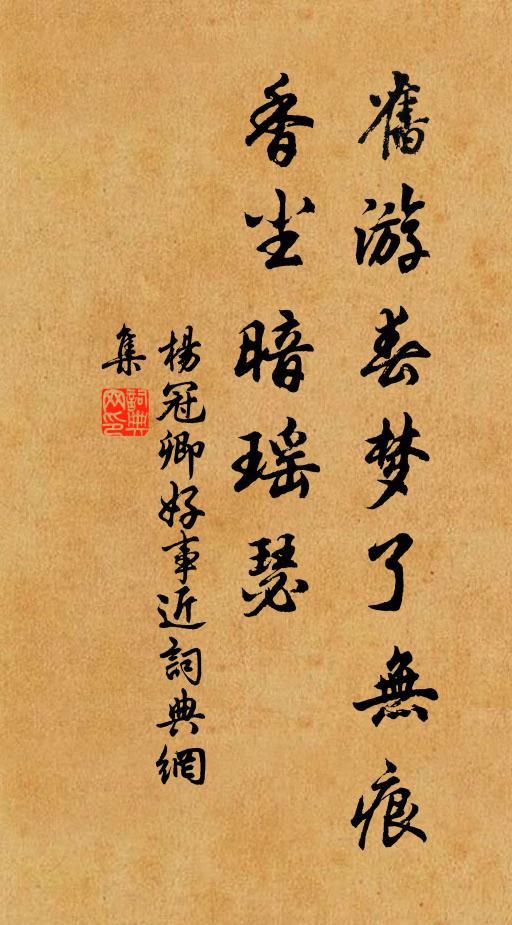 舊游春梦了無痕
香尘暗瑶瑟
楊冠卿好事近詞典網
集
詞典
网印